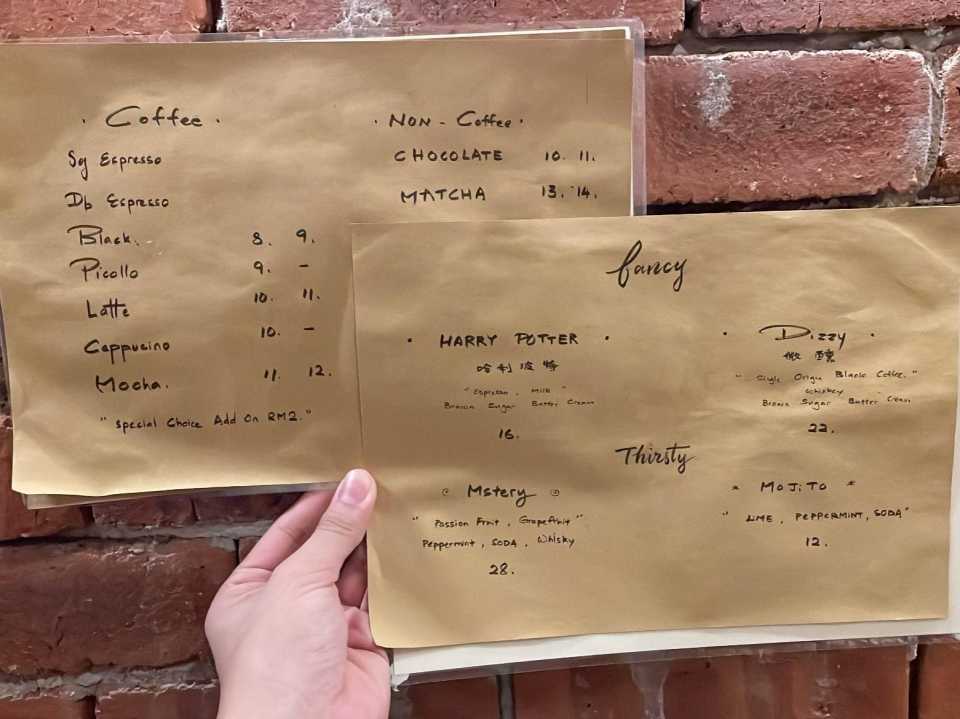 · Coffee ·
Sg Espresso
Db Espresso
Black. 8. 9.
Picollo 9. -
Latte 10. 11.
Cappucino 10. -
Mocha. 11. 12.
"Special Choice Add On RM2."
· NON - Coffee ·
CHOCOLATE 10. 11.
MATCHA 13. 14.
fancy
· HARRY POTTER ·
哈利波特
"Espresso, Milk"
Brown Sugar Butter Cream
16.
· Dizzy ·
微醺
"Single Origin Black Coffee."
Whiskey
Brown Sugar Butter Cream
22.
Thirsty
Mstery
"Passion Fruit, Grapefruit"
Peppermint, SODA, Whisky
28.
* MOJITO *
"LIME, PEPPERMINT, SODA"
12.